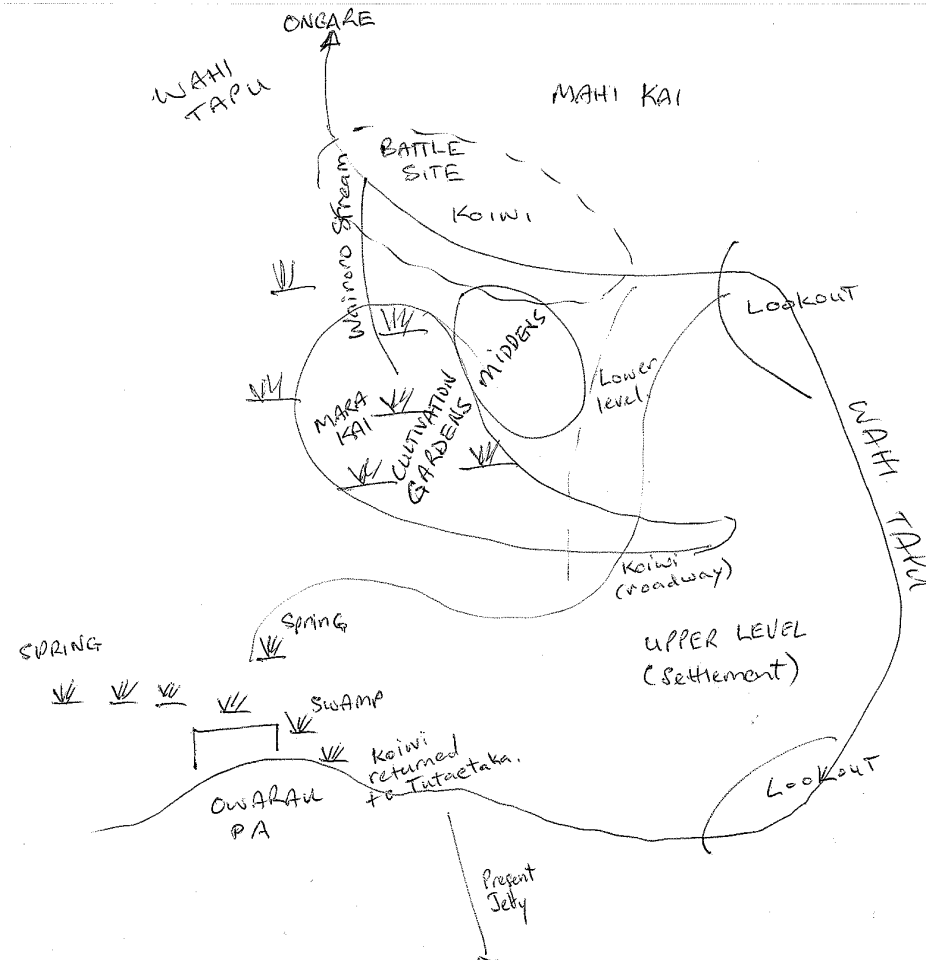 ONGARE
WAHI
TAPU
MAHI KAI
BATTLE
SITE
KOIWI
Wainoro Stream
LOOKOUT
MIDDENS
Lower
level
MARA
KAI
CULTIVATION
GARDENS
WAHI TAPU
Koiwi
(roadway)
SPRING
SpriNG
UPPER LEVEL
(Settlement)
SWAMP
Koiwi
returned
to Tutaetaka.
OWARAU
PA
LOOKOUT
Present
Jetty